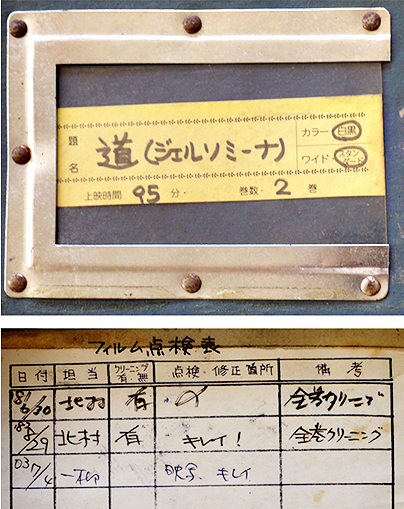 題名 道(ジェルソミーナ)
カラー・白黒
ワイド・スタンダード
上映時間 95分・ 巻数・2巻
フィルム点検表
日付 担当 クリーニング有・無 点検・修正箇所 備考
北村 有 全巻クリーニング
83 /29 北村 有 キレイ! 全巻クリーニング
03 7/4 一柳 映写、キレイ